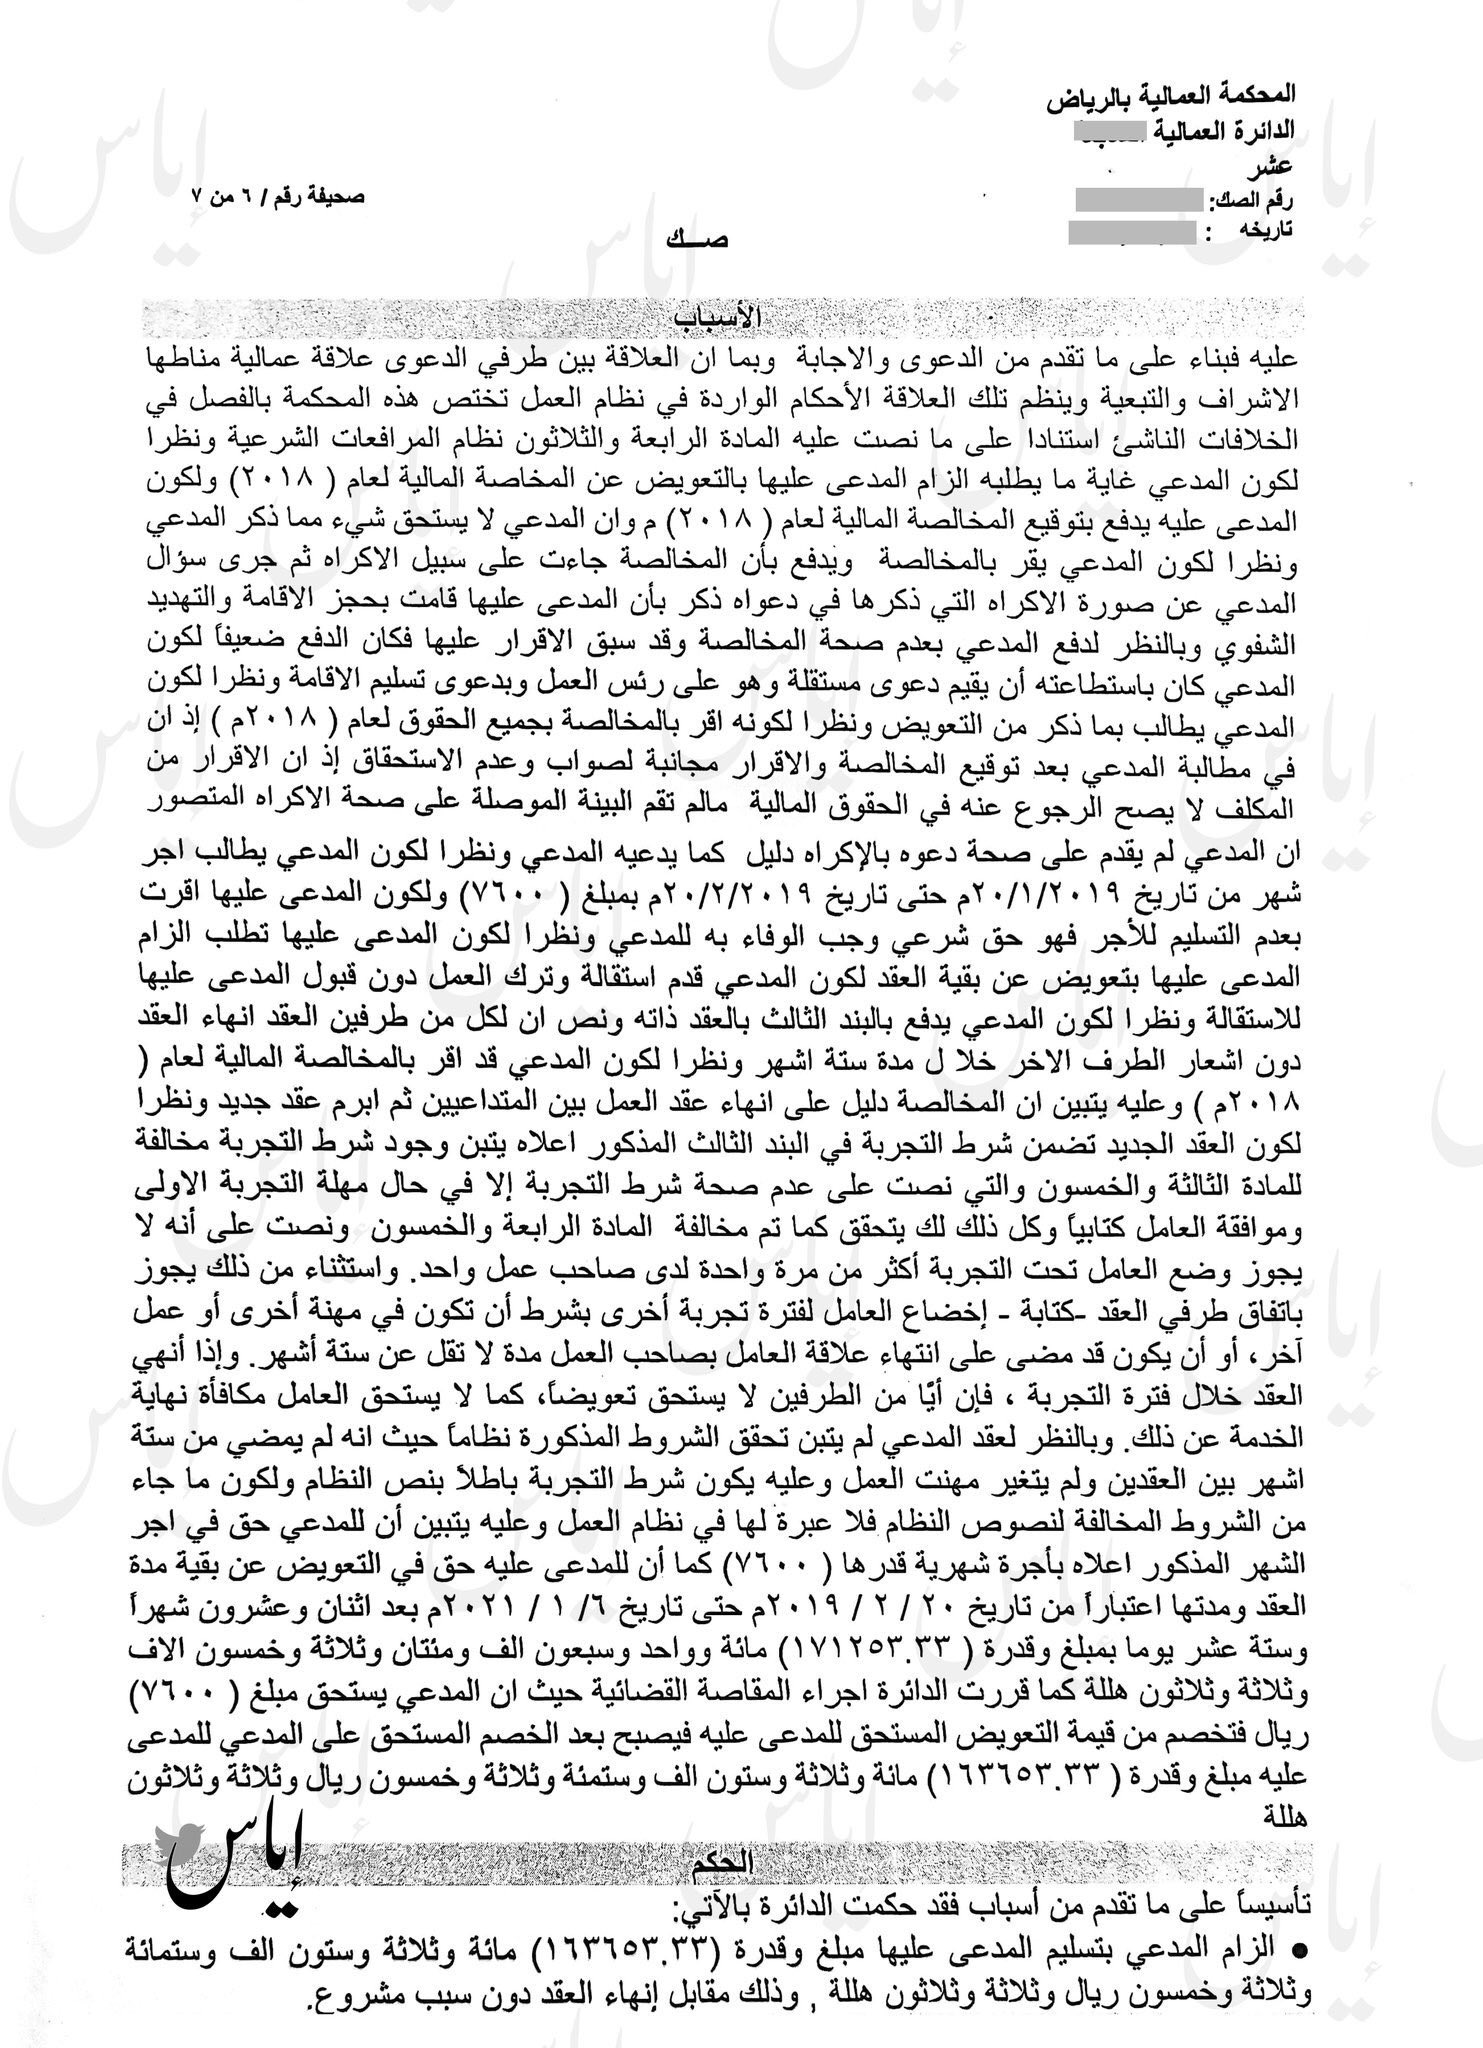 المحكمة العمالية بالرياض
الدائرة العمالية
عشر
رقم الصك:
تاريخه :
صحيفة رقم / ٦ من ٧
صـــك
الأسباب
عليه فبناء على ما تقدم من الدعوى والاجابة وبما ان العلاقة بين طرفي الدعوى علاقة عمالية مناطها
الاشراف والتبعية وينظم تلك العلاقة الأحكام الواردة في نظام العمل تختص هذه المحكمة بالفصل في
الخلافات الناشئ استنادا على ما نصت عليه المادة الرابعة والثلاثون نظام المرافعات الشرعية ونظرا
لكون المدعي غاية ما يطلبه الزام المدعى عليها بالتعويض عن المخاصة المالية لعام ( ٢٠١٨) ولكون
المدعى عليه يدفع بتوقيع المخالصة المالية لعام ( ٢٠١٨) م وان المدعي لا يستحق شيء مما ذكر المدعي
ونظرا لكون المدعي يقر بالمخالصة ويدفع بأن المخالصة جاءت على سبيل الاكراه ثم جرى سؤال
المدعي عن صورة الاكراه التي ذكرها في دعواه ذكر بأن المدعى عليها قامت بحجز الاقامة والتهديد
الشفوي وبالنظر لدفع المدعي بعدم صحة المخالصة وقد سبق الاقرار عليها فكان الدفع ضعيفاً لكون
المدعي كان باستطاعته أن يقيم دعوى مستقلة وهو على رئس العمل وبدعوى تسليم الاقامة ونظرا لكون
المدعي يطالب بما ذكر من التعويض ونظرا لكونه اقر بالمخالصة بجميع الحقوق لعام ( ٢٠١٨م ) إذ ان
في مطالبة المدعي بعد توقيع المخالصة والاقرار مجانبة لصواب وعدم الاستحقاق إذ ان الاقرار من
المكلف لا يصح الرجوع عنه في الحقوق المالية مالم تقم البينة الموصلة على صحة الاكراه المتصور
ان المدعي لم يقدم على صحة دعوه بالإكراه دليل كما يدعيه المدعي ونظرا لكون المدعي يطالب اجر
شهر من تاريخ ٢٠/١/٢٠١٩م حتى تاريخ ٢٠/٢/٢٠١٩م بمبلغ ( ٧٦٠٠) ولكون المدعى عليها اقرت
بعدم التسليم للأجر فهو حق شرعي وجب الوفاء به للمدعي ونظرا لكون المدعى عليها تطلب الزام
المدعى عليها بتعويض عن بقية العقد لكون المدعي قدم استقالة وترك العمل دون قبول المدعى عليها
للاستقالة ونظرا لكون المدعي يدفع بالبند الثالث بالعقد ذاته ونص ان لكل من طرفين العقد انهاء العقد
دون اشعار الطرف الاخر خلا ل مدة ستة اشهر ونظرا لكون المدعي قد اقر بالمخالصة المالية لعام (
٢٠١٨م ) وعليه يتبين ان المخالصة دليل على انهاء عقد العمل بين المتداعيين ثم ابرم عقد جديد ونظرا
لكون العقد الجديد تضمن شرط التجربة في البند الثالث المذكور اعلاه يتبن وجود شرط التجربة مخالفة
للمادة الثالثة والخمسون والتي نصت على عدم صحة شرط التجربة إلا في حال مهلة التجربة الاولى
وموافقة العامل كتابياً وكل ذلك لك يتحقق كما تم مخالفة المادة الرابعة والخمسون ونصت على أنه لا
يجوز وضع العامل تحت التجربة أكثر من مرة واحدة لدى صاحب عمل واحد. واستثناء من ذلك يجوز
باتفاق طرفي العقد -كتابة - إخضاع العامل لفترة تجربة أخرى بشرط أن تكون في مهنة أخرى أو عمل
آخر، أو أن يكون قد مضى على انتهاء علاقة العامل بصاحب العمل مدة لا تقل عن ستة أشهر. وإذا أنهي
العقد خلال فترة التجربة ، فإن أيًا من الطرفين لا يستحق تعويضاً، كما لا يستحق العامل مكافأة نهاية
الخدمة عن ذلك. وبالنظر لعقد المدعي لم يتبن تحقق الشروط المذكورة نظاماً حيث انه لم يمضي من ستة
اشهر بين العقدين ولم يتغير مهنت العمل وعليه يكون شرط التجربة باطلاً بنص النظام ولكون ما جاء
من الشروط المخالفة لنصوص النظام فلا عبرة لها في نظام العمل وعليه يتبين أن للمدعي حق في اجر
الشهر المذكور اعلاه بأجرة شهرية قدرها ( ٧٦٠٠) كما أن للمدعى عليه حق في التعويض عن بقية مدة
العقد ومدتها اعتباراً من تاريخ ٢٠ / ٢ / ٢٠١٩م حتى تاريخ ٦/ ١ / ٢٠٢١م بعد اثنان وعشرون شهراً
وستة عشر يوما بمبلغ وقدرة ( ١٧١٢٥٣.٣٣) مائة وواحد وسبعون الف ومئتان وثلاثة وخمسون الاف
وثلاثة وثلاثون هللة كما قررت الدائرة اجراء المقاصة القضائية حيث ان المدعي يستحق مبلغ ( ٧٦٠٠)
ريال فتخصم من قيمة التعويض المستحق للمدعى عليه فيصبح بعد الخصم المستحق على المدعي للمدعى
عليه مبلغ وقدرة ( ١٦٣٦٥٣.٣٣) مائة وثلاثة وستون الف وستمئة وثلاثة وخمسون ريال وثلاثة وثلاثون
هللة
إياس
الحكم
تأسيساً على ما تقدم من أسباب فقد حكمت الدائرة بالآتي:
● الزام المدعي بتسليم المدعى عليها مبلغ وقدرة (١٦٣٦٥٣.٣٣) مائة وثلاثة وستون الف وستمائة
وثلاثة وخمسون ريال وثلاثة وثلاثون هللة , وذلك مقابل إنهاء العقد دون سبب مشروع.